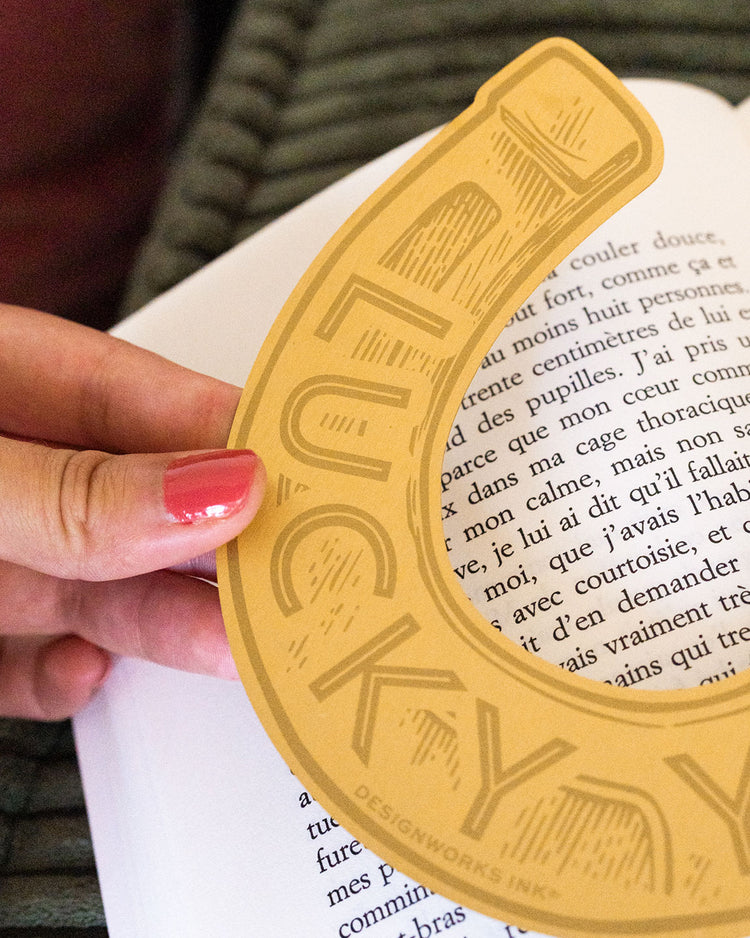 LUCKY Y
DESIGNWORKS INK
couler douce,
out fort, comme ça et
au moins huit personnes
trente centimètres de lui e
d des pupilles. J'ai pris u
parce que mon cœur comm
x dans ma cage thoracique
r mon calme, mais non sa
ve, je lui ai dit qu'il fallait
moi, que j'avais l'habi
s avec courtoisie, et c
it d'en demander
ais vraiment trè
ains qui tre
qui
a
tu
fure
mes p
commin
-bras
re